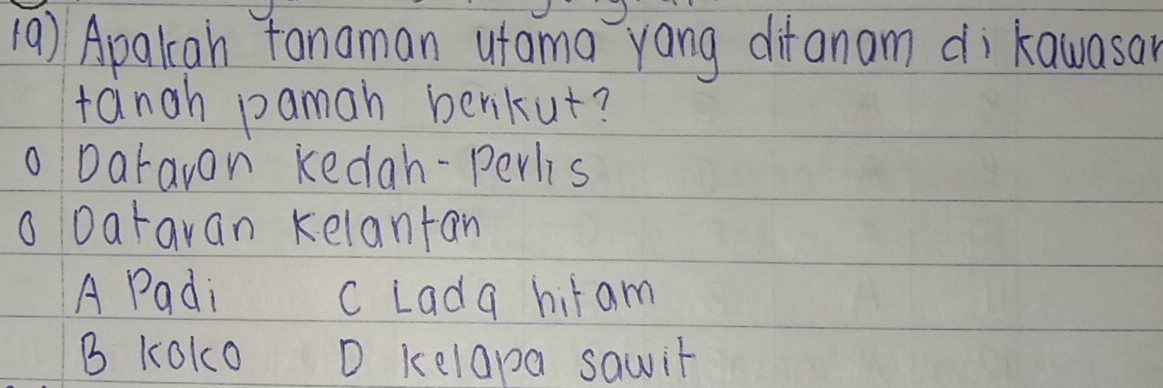 19) Apakah tanaman utama yang ditanam di kawasan
tanah pamah berikut?
o Dataran Kedah - Perlis
o Dataran Kelantan
A Padi C Lada hitam
B Koko D Kelapa sawit